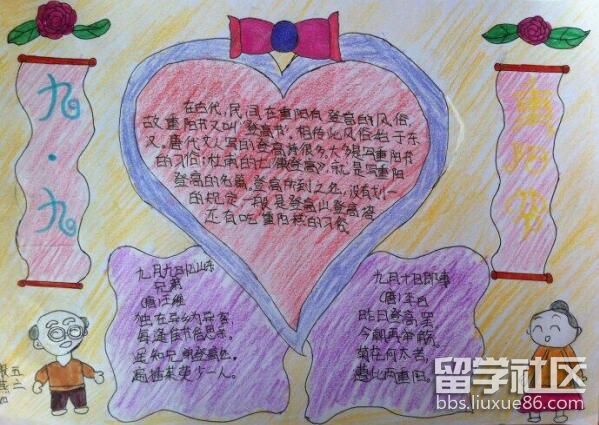 九·九
重阳节
在古代,民间在重阳有登高的风俗,
故重阳节又叫"登高节"。相传此风俗始于东
汉。唐代文人写的登高诗很多,大多是写重阳节
的习俗;杜甫的七律《登高》,就是写重阳
登高的名篇。登高所到之处,没有划一
的规定,一般是登高山、登高塔
还有吃重阳糕的习俗。
九月九日忆山东
兄弟
(唐)王维
独在异乡为异客,
每逢佳节倍思亲。
遥知兄弟登高处,
遍插茱萸少一人。
九月十日即事
(唐)李白
昨日登高罢,
今朝再举觞。
菊花何太苦,
遭此两重阳。
五
二
留学社区
bbs.liuxue86.com